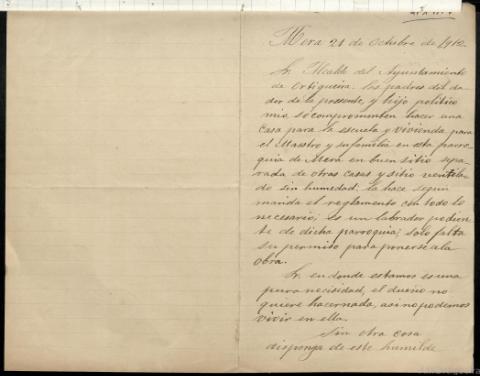 Mera 21 de Octubre de 1912.
Sr. Alcalde del Ayuntamiento
de Ortigueira. los padres del da
dor de la presente, y hijo politico
mio, se comprometen hacer una
casa para la escuela y vivienda para
el Maestro y su familia en esta parro
quia de Mera en buen sitio sepa
rada de otras casas y sitio ventila
do sin humedad; la hace segun
manda el reglamento con todo lo
necesario; es un labrador pudien
te de dicha parroquia; solo falta
su permiso para ponerse a la
obra.
Sr. en donde estamos es una
pura necisidad, el dueño no
quiere hacer nada, asi no podemos
vivir en ella.
Sin otra cosa
disponga de este humilde